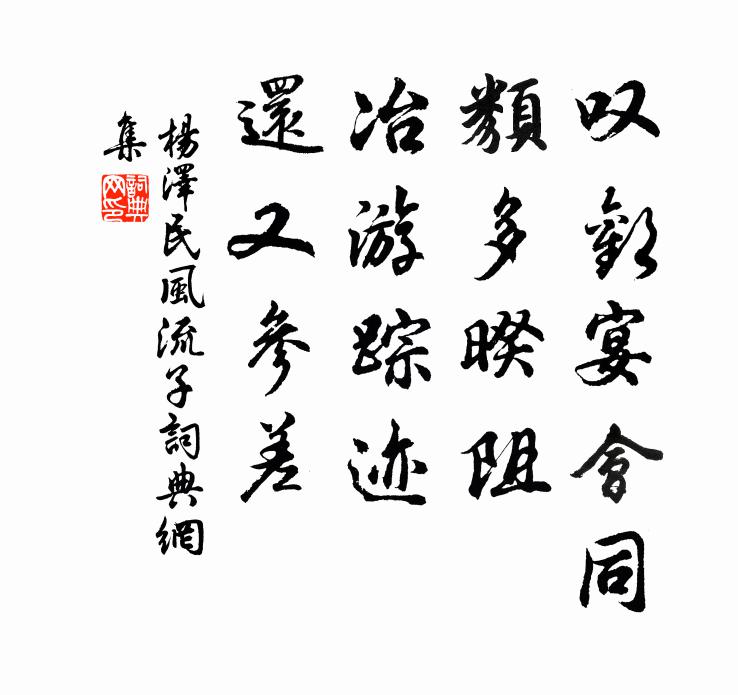 叹歡宴會同
類多暌阻
冶游踪迹
還又參差
楊澤民風流子詞典網
集
詞典网印